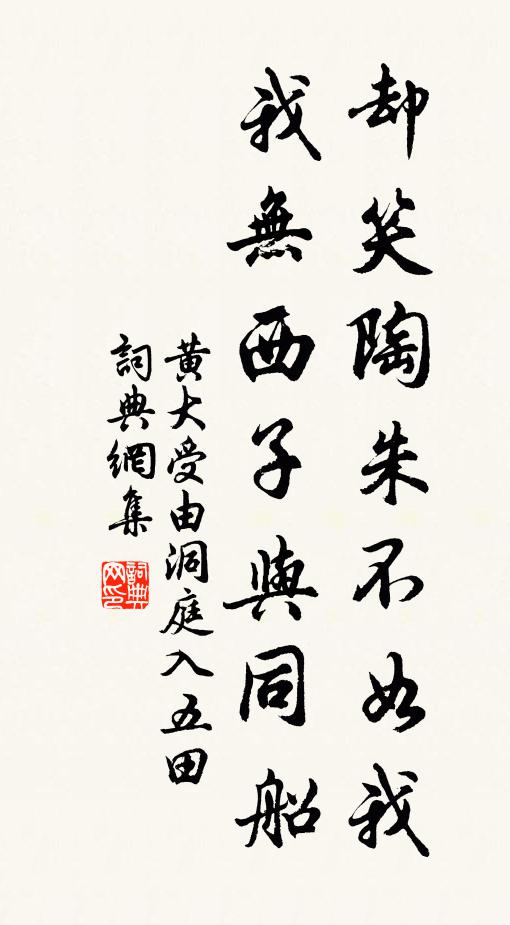 却笑陶朱不如我
我無西子與同船
黃大受由洞庭入五田
詞典網集
詞典網印